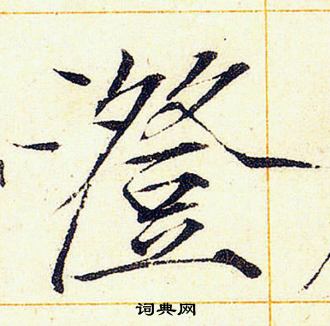 澄
词典网